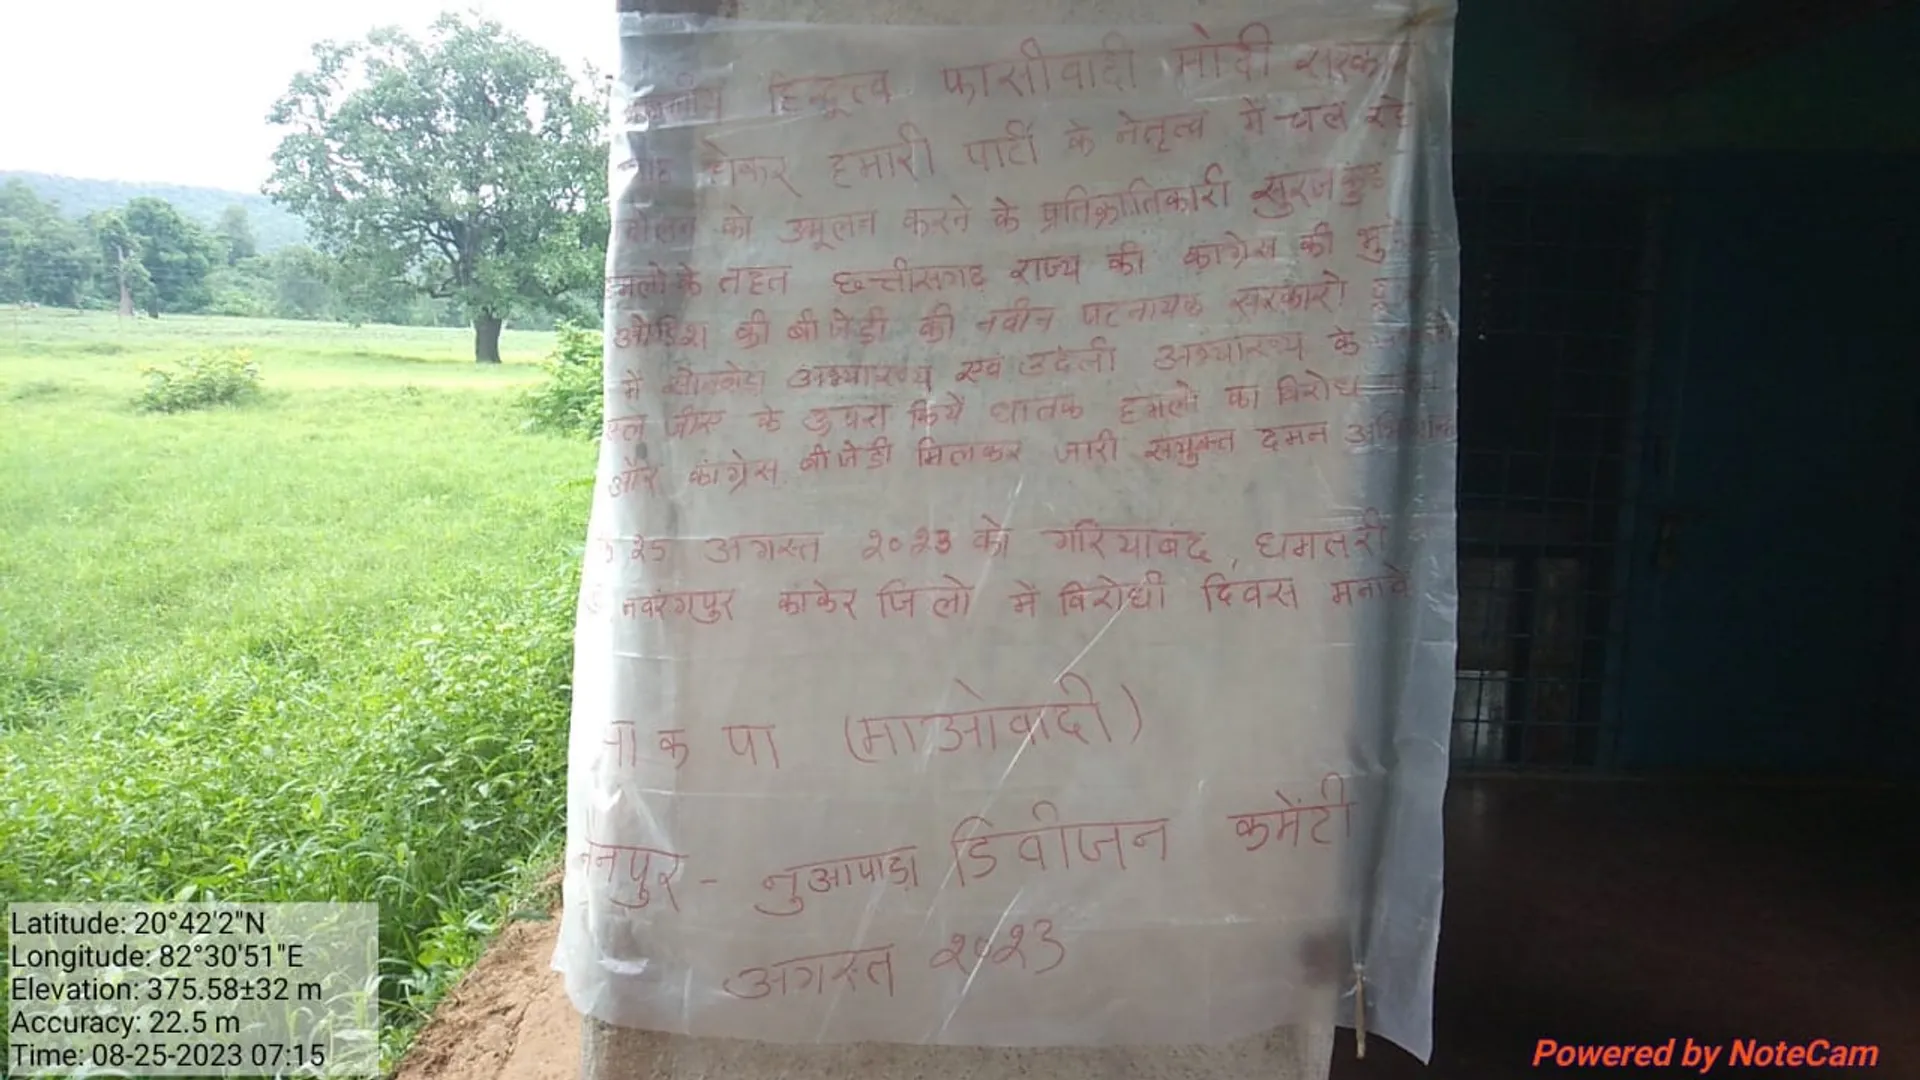 हिन्दूत्व फासीवादी मोदी सरका
होकर हमारी पार्टी के नेतृत्व में चल रहे
को उमूलन करने के प्रतिक्रांतिकारी सुरजकुंड
हमलो के तहत छत्तीसगढ़ राज्य की कांग्रेस की
की बीजेडी की नवीन पटनायक सरकारो
में अभ्यारण्य एवं उदंती अभ्यारण्य के
के उपरा किये घातक हमलो का विरोध
और कांग्रेस बीजेडी मिलकर जारी संयुक्त दमन
25 अगस्त २०२3 को गरियाबंद, धमतरी
नवरंगपुर कांकेर जिलो में विरोधी दिवस मनावे
क पा (माओवादी)
नपुर - नुआपाड़ा डिवीजन कमेटी
अगस्त २०२3
Latitude: 20°42'2"N
Longitude: 82°30'51"E
Elevation: 375.58±32 m
Accuracy: 22.5 m
Time: 08-25-2023 07:15
Powered by NoteCam